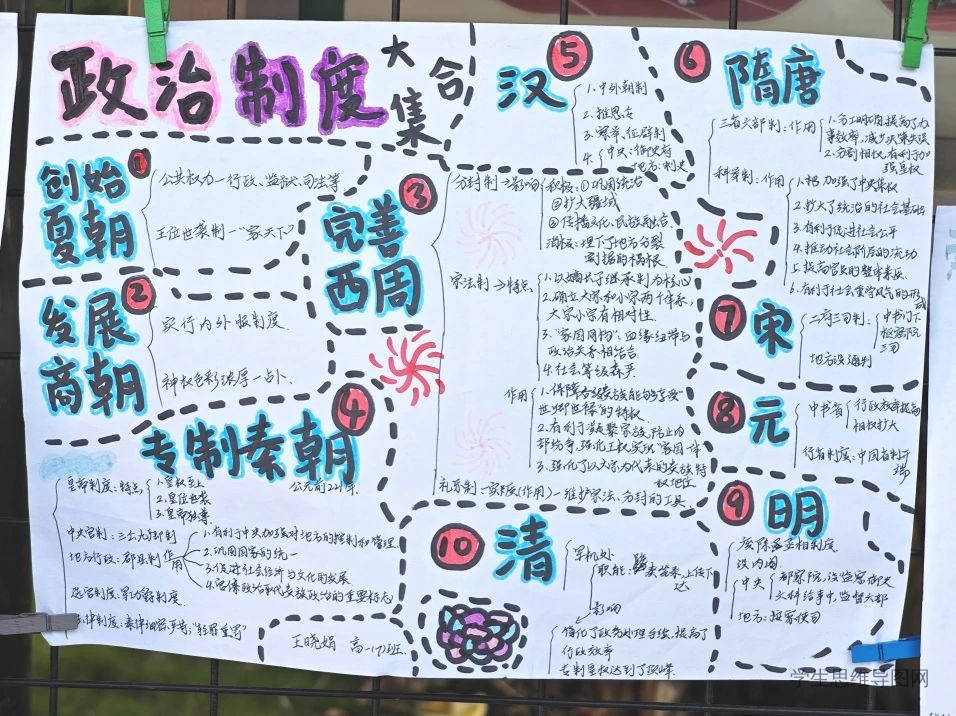 政治制度大集合
① 创始夏朝
公共权力—行政、监狱、司法等
王位世袭制—“家天下”
② 发展商朝
实行内外服制度.
神权色彩浓厚—占卜.
③ 完善西周
分封制→影响
积极:①巩固统治
②扩大疆域
③传播文化、民族融合
消极:埋下了地方分裂
割据的祸根
宗法制→特点
1.以嫡长子继承制为核心
2.确立大宗和小宗两个体系,
大宗小宗有相对性
3.“家国同构”,血缘纽带与
政治关系相结合
4.社会等级森严
作用
1.保障各级贵族能够享受
“世卿世禄”的特权
2.有利于凝聚家族,防止内
部纷争,强化王权实现“家国一体
3.强化了以天子为代表的贵族特
权地位
礼乐制:实质(作用)—维护宗法、分封的工具
④ 专制秦朝
公元前221年.
皇帝制度:特点
1.皇权至上
2.皇位世袭
3.皇帝独尊
中央官制:三公九卿制
地方行政:郡县制
作用
1.有利于中央加强对地方的控制和管理
2.巩固国家的统一
3.促进社会经济与文化的发展
4.官僚政治取代贵族政治的重要标志
选官制度:军功爵制度.
⑤ 汉
1.中外朝制
2.推恩令
3.察举、征辟制
4.
中央:御史府
地方:刺史
⑥ 隋唐
三省六部制:作用
1.分工明确,提高了办
事效率,减少决策失误
2.分割相权,有利于加
强皇权
科举制:作用
1.加强了中央集权
2.扩大了统治的社会基础
3.有利于促进社会公平
4.推动社会阶层的流动
5.提高官员的整体素质
6.有利于社会重学风气的形成
⑦ 宋
二府三司制:
中书门下
枢密院
三司
地方设通判
⑧ 元
中书省
行政效率提高
相权扩大
行省制度:中国省制开端
⑨ 明
废除丞相制度
设内阁
中央
都察院,设监察御史
六科给事中,监督六部
地方:按察使司
⑩ 清
军机处
职能:
上传下达
影响
简化了政务处理手续,提高了
行政效率
专制皇权达到了顶峰.
王晓娟 高一(7)班
学生思维导图网